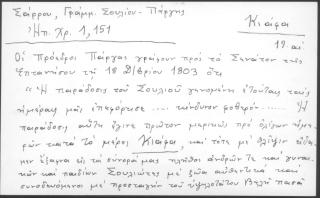 Σάρρου, Γράμμ. Σουλίου - Πάργης
Ἠπ. Χρ. 1, 151
Κιάφα
19 αἰ.
Οἱ Πρόεδροι Πάργας γράφουν πρὸς τὸ Σενᾶτον τῆς
Ἑπτανήσου τῇ 18 Δ/βρίου 1803 ὅτι
"Ἡ παράδοσις τοῦ Σουλίου γενομένη ἐτούταις ταῖς
ἡμέραις μᾶς ἐπεφόρτισε .... κίνδυνον φοβερόν ..... Ἡ
παράδοσις αὕτη ἔγινε πρῶτον μερικῶς πρὸ ὀλίγων ἡμε-
ρῶν κατὰ τὸ μέρος Κιάφα, καὶ τότε μὲ θλῖψιν εἴδα-
μεν ἔξαφνα εἰς τὰ σύνορά μας πλῆθος ἀνδρῶν τε καὶ γυναι-
κῶν καὶ παιδίων Σουλιώτες μὲ ζῶα αὐθεντικὰ καὶ
συνοδευόμενοι μὲ προσταγὴν τοῦ ὑψηλοτάτου Βελῆ πασᾶ